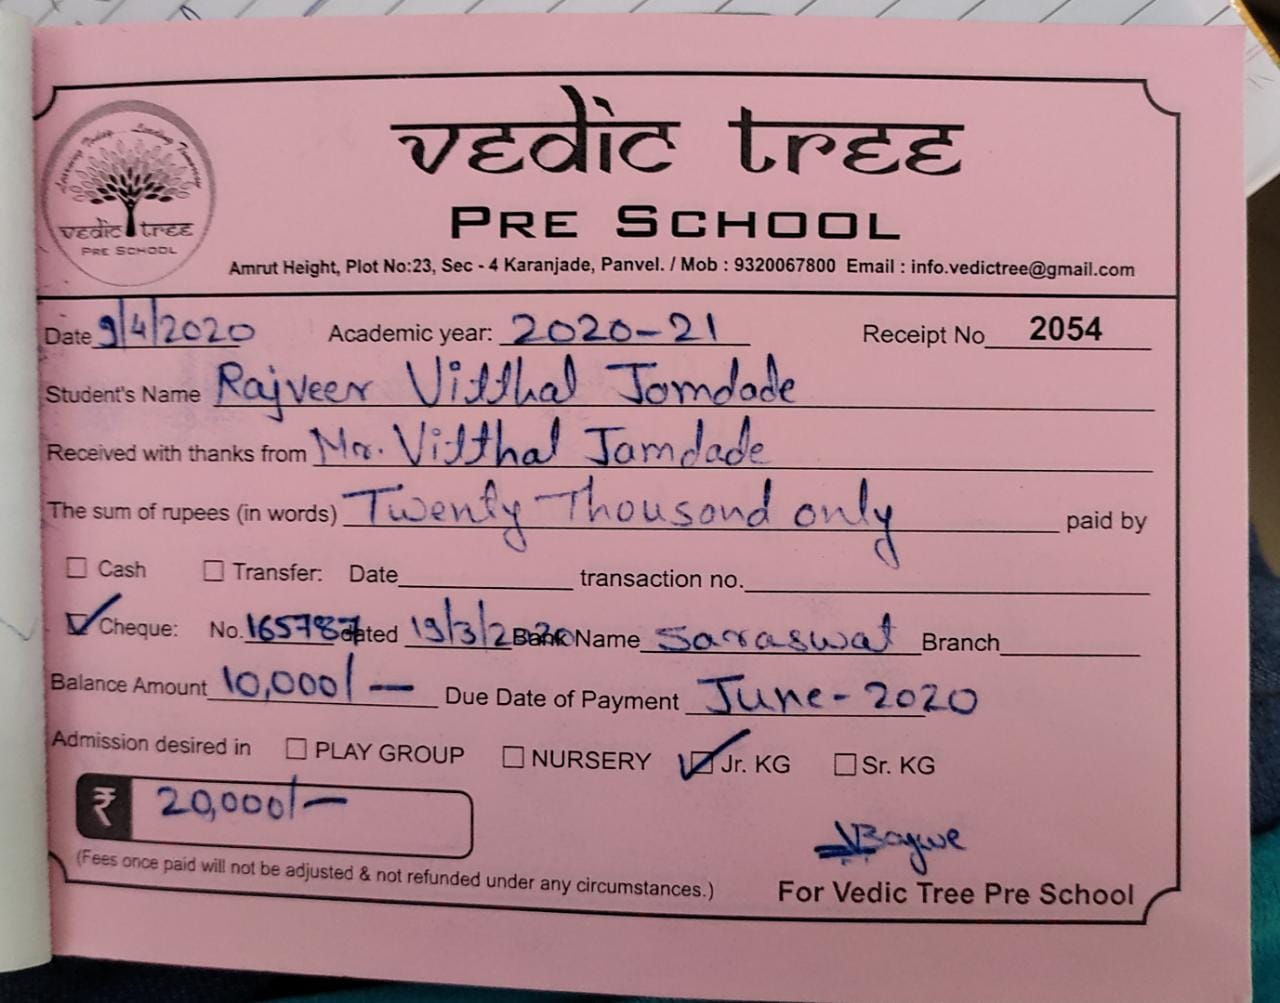 Learning Today... Leading Tomorrow
vedic tree
PRE SCHOOL
vedic tree
PRE SCHOOL
Amrut Height, Plot No:23, Sec - 4 Karanjade, Panvel. / Mob : 9320067800 Email : info.vedictree@gmail.com
Date 9/4/2020 Academic year: 2020-21 Receipt No 2054
Student's Name Rajveer Vitthal Jamdade
Received with thanks from Mr. Vitthal Jamdade
The sum of rupees (in words) Twenty Thousand only paid by
Cash Transfer: Date transaction no.
Cheque: No. 165787 dated 19/3/2020 Bank Name Saraswat Branch
Balance Amount 10,000/- Due Date of Payment June-2020
Admission desired in PLAY GROUP NURSERY Jr. KG Sr. KG
₹ 20,000/-
(Fees once paid will not be adjusted & not refunded under any circumstances.)
For Vedic Tree Pre School